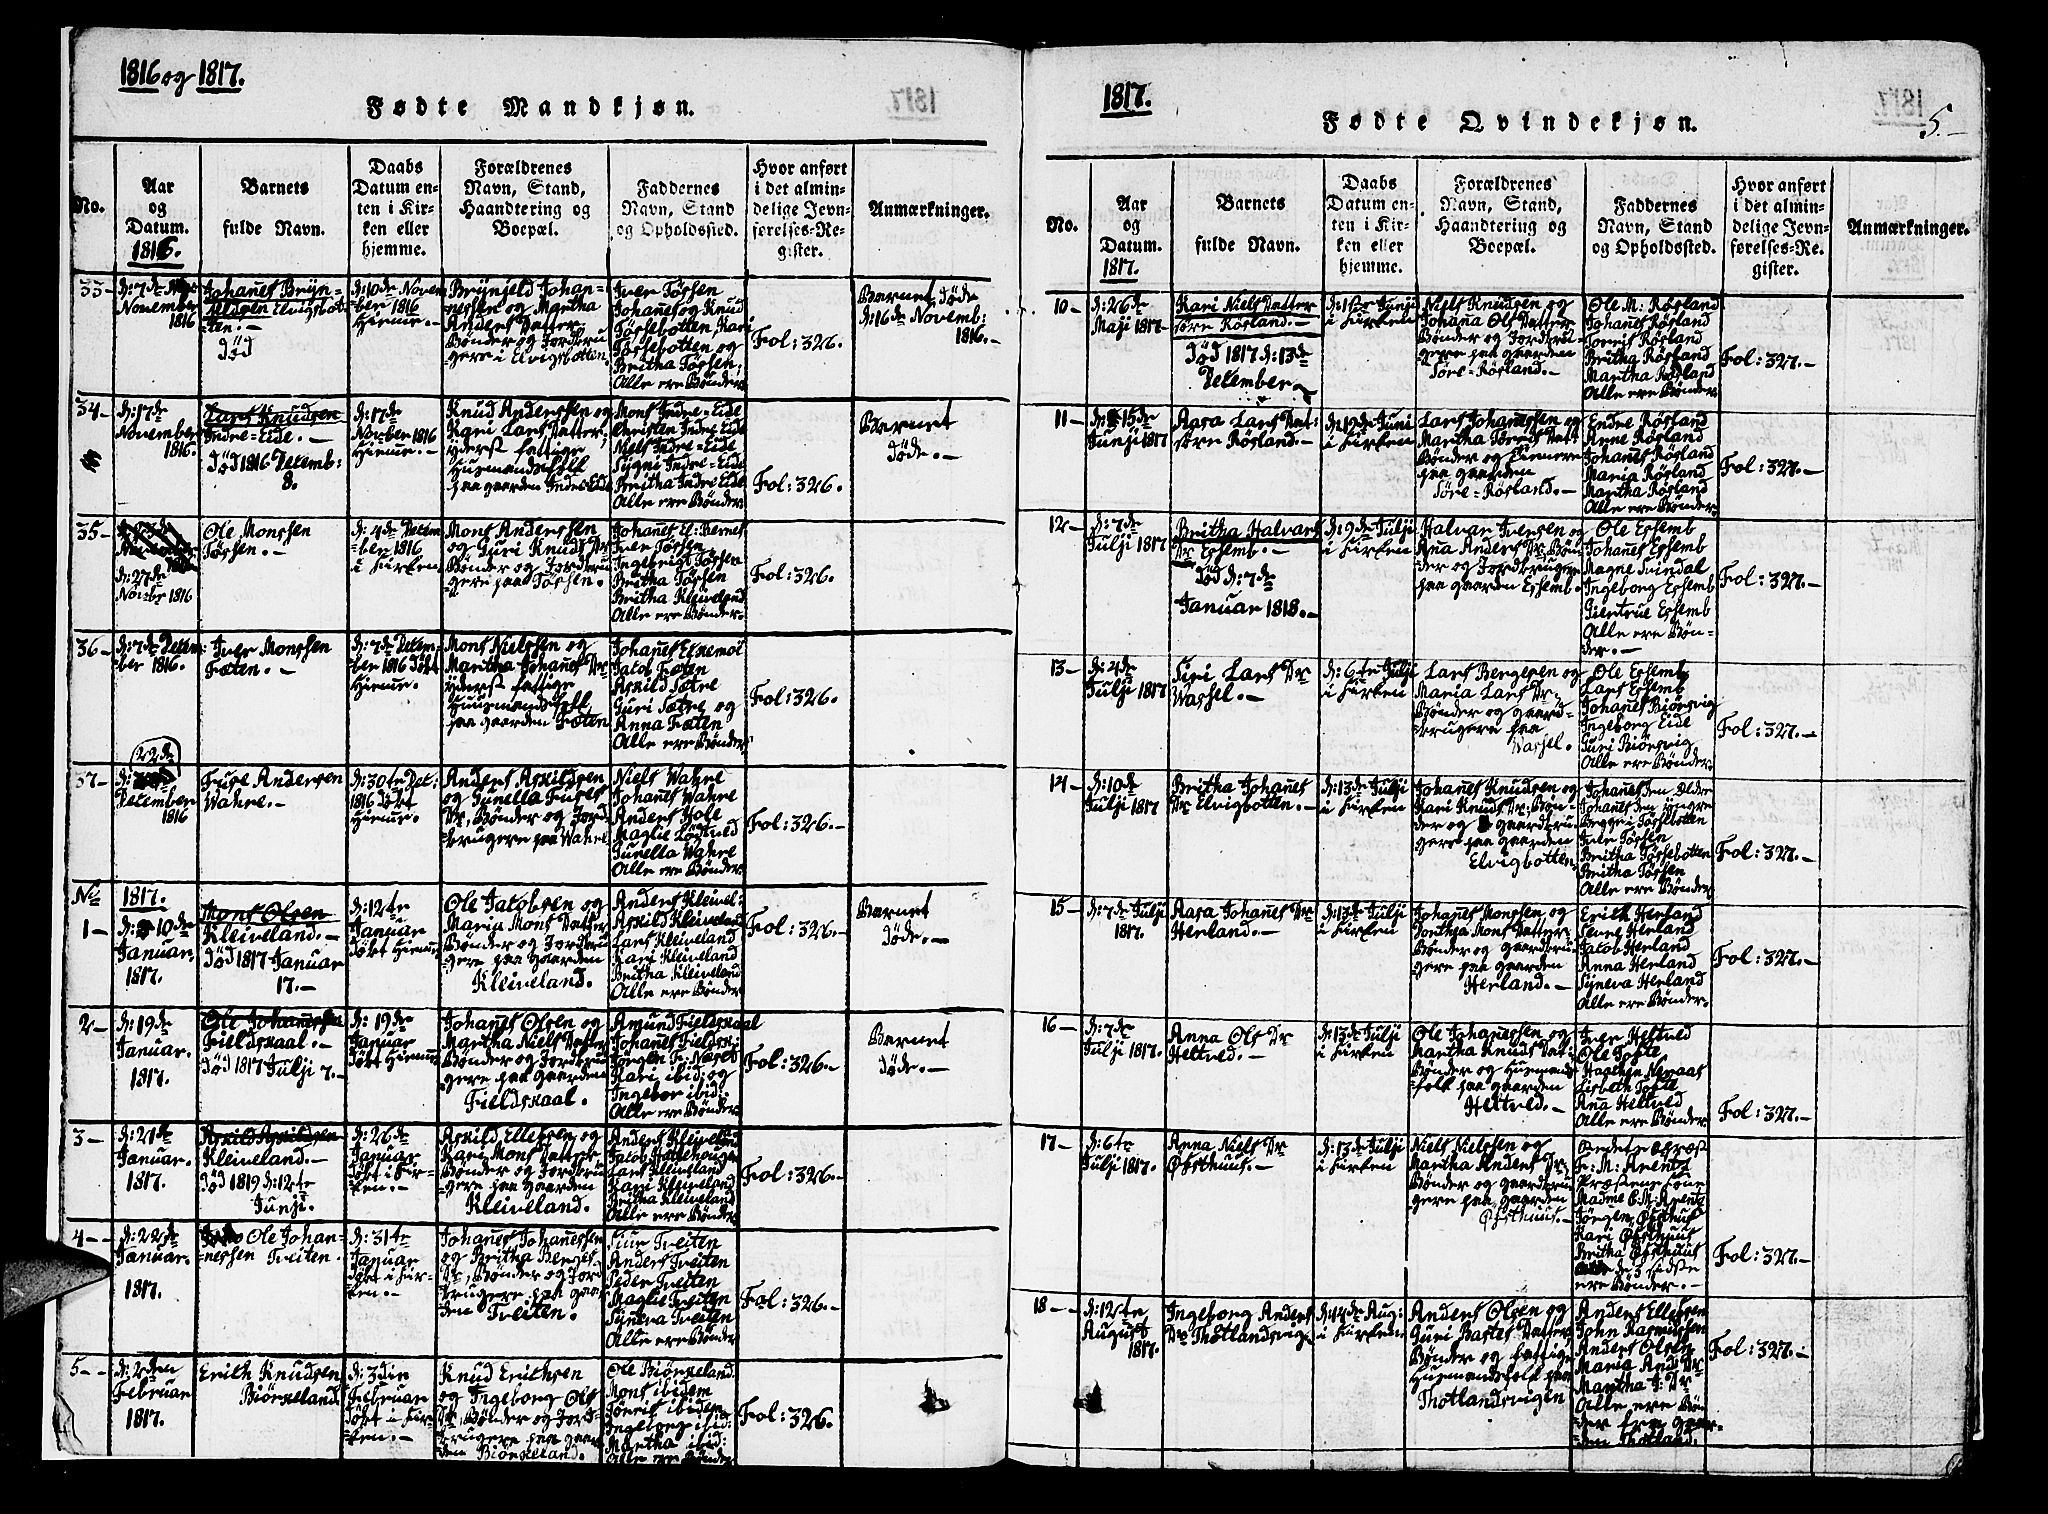 1816 og 1817.
Fødte Mandkjøn.
No.
Aar
og
Datum.
1816.
Barnets
fulde Navn.
Daabs
Datum en-
ten i Kir-
ken eller
hjemme.
Forældrenes
Navn, Stand,
Haandtering og
Boepæl.
Faddernes
Navn, Stand
og Opholdssted.
Hvor anført
i det almin-
delige Jevn-
førelses-Re-
gister.
Anmærkninger.
33-
d: 7de
November
1816
Johanes Brÿn-
jeldsen Elvigsbot-
ten.-
Død
d: 10de Novem
ber 1816
Hieme.-
Brÿnjeld Johan-
nessen og Martha
Anders Datter
Bønder og Jordbru
gere i Elvigsbotten.
Iver Tøssen
Johanes og Knud
Tøssebotten Kari
Tøssebotten og
Britha Tøssen;
Alle ere Bønder
Fol: 326.
Barnet døde
d: 16de Novemb:
1816.-
34-
d: 17de
November
1816.
Lars Knudsen
Indre=Eide.-
Død 1816 Decemb:
8.
d: 17de
Novber 1816
Hieme.-
Knud Anderssen og
Kari Lars Datter,
ÿderst fattige
Huusmandsfolk
paa gaarden Indre Eide
Mons Indre=Eide
Christen Indre Eide
Niels Indre=Eide
Signi Indre=Eide
Britha Indre Eide
Alle ere Bønder
Fol: 326.
Barnet
døde.-
35-
d: 27de
Novbr 1816
Ole Monssen
Tøssen.-
d: 4de Decem
ber 1816
i Kirken
Mons Anderssen
og Guri Knuds Dr
Bønder og Jordbru
gere paa Tøssen.
Johanes El: Bernes
Iver Tøssen
Ingebrigt Tøssen
Britha Tøssen
Britha Kleiveland
Alle ere Bønder
Fol: 326.
36-
d: 7de Decem
ber 1816.
Iver Monssen
Fæten.-
d: 7de Decem-
ber 1816 Døbt
Hieme.
Mons Nielssen og
Martha Johanes Dr
ÿderst fattige
Huusmandsfolk
paa gaarden Fæten
Johanes Elnemoi
Jacob Fæten
Askild Sætre
Guri Sætre og
Anna Fæten
Alle ere Bønder
Fol: 326.
37-
22de
December
1816
Fuse Andersen
Wahre.-
d: 30te Dec:
1816 Døbt
Hieme.
Anders Askildsen
og Gunella Fuses
Dr, Bønder og Jord
brugere paa Wahre
Niels Wahre
Johanes Wahre
Anders Hole
Maglie Løgtved
Gunella Wahre
Alle ere Bønder
Fol: 326.-
No
1817.
1-
d: 10de
Januar
1817.
Mons Olsen
Kleiveland.-
Død 1817 Januar
17.-
d: 12te
Januar
Døbt Hieme
Ole Jacobsen og
Maria Mons Datter
Bønder og Jordbru
gere paa gaarden
Kleiveland.
Anders Kleivel:
Askild Kleiveland
Lars Kleiveland
Kari Kleiveland
Britha Kleiveland
Alle ere Bønder
Fol: 326.-
Barnet
døde.-
2-
d: 19de
Januar.
1817.
Ole Johanessen
Fieldskaal.-
Død 1817 Julji 7.-
d: 19de
Januar
Døbt Hieme
Johanes Olsen og
Martha Niels Datter
Bønder og Jordbru
gere paa gaarden
Fieldskaal.
Amund Fieldskaal
Johanes Fieldsk:
Jørgen Fr: Næset
Kari ibid: og
Ingebor ibid:
Alle ere Bønder
Fol: 326.-
Barnet
døde.-
3-
d: 21de
Januar.
1817.
Askild Askildsen
Kleiveland.-
Død 1819 d: 12te
Junji.-
d: 26de
Januar
Døbt i Kir-
ken.-
Askild Ellefsen og
Kari Mons Datter
Bønder og Jordbru
gere paa gaarden
Kleiveland.
Anders Kleiveland
Jacob Havehougen
Lars Kleiveland
Kari Kleiveland
Britha Kleiveland
Alle ere Bønder
Fol: 326.-
4-
d: 22de
Januar.
1817.
Ole Johan-
nessen Tveiten.-
d: 31te
Januar
Døbt i Kir-
ken.-
Johanes Johanessen
og Britha Berges
Dr, Bønder og Jord
brugere paa gaar
den Tveiten.
Siur Tveiten
Anders Tveiten
Peder Tveiten
Maglie Tveiten
Synneva Tveiten
Alle ere Bønder
Fol: 326.
5-
d: 2den
Februar
1817.
Erich Knudsen
Biørkeland
d: 3die
Februar
Døbt i Kir
ken.-
Knud Erichsen
og Ingeborg Ols
Dr, Bønder og Jord-
brugere paa gaar
den Biørkeland.
Ole Biørkeland
Mons ibidem
Tørris ibidem
Ingeborg ibid:
Martha ibid:
Alle ere Bønder
Fol: 326.
1817.
5.-
Fødte Qvindekjøn.
No.
Aar
og
Datum.
1817.
Barnets
fulde Navn.
Daabs
Datum en-
ten i Kir-
ken eller
hjemme.
Forældrenes
Navn, Stand,
Haandtering og
Boepæl.
Faddernes
Navn, Stand
og Opholdssted.
Hvor anført
i det almin-
delige Jevn-
førelses-Re-
gister.
Anmærkninger.
10-
d: 26de
Maji 1817
Kari Niels Datter
søre Røsland.-
Død 1817 d: 13de
December
d: 1ste Junji
i Kirken
Niels Knudsen og
Johana Ols Datter
Bønder og Jordbru-
gere paa gaarden
Søre-Røsland.-
Ole M: Røsland
Johanes Røsland
Torris Røsland
Britha Røsland
Martha Røsland
Alle ere Bønder
Fol: 327.-
11-
d: 15de
Junji 1817
Aasa Lars Dat:
søre Røsland.-
d: 19de Juni
i Kirken
Lars Johanessen og
Martha Torris Dat-
Bønder og
paa gaarden
Søre=Røsland.-
Endre Røsland
Anne Røsland
Johanes Røsland
Maria Røsland
Martha Røsland
Alle ere Bønder
Fol: 327.-
12-
d: 7de
Julji 1817
Britha Halvars
Dr Espemb.-
Død d: 7de
Januar 1818.-
d: 9de Julji
i Kirken
Halvar Iversen og
Ana Anders Dr, Bøn
der og Jordbrugere
paa gaarden Espemb.
Ole Espemb
Johanes Espemb
Magne Svindal
Ingeborg Espemb
Giertrue Espemb
Alle ere Bøn-
der.-
Fol: 327.-
13-
d: 4de
Julji 1817
Siri Lars Dr
Wassel.-
d: 6te Julji
i Kirken
Lars Bergesen og
Maria Lars Dr,
Bønder og gaard-
brugere paa
Wassel.
Ole Espemb
Lars Espemb
Johanes Biørsvig
Ingeborg Eide
Guri Biørsvig
Alle ere Bønder
Fol: 327.-
14-
d: 10de
Julji 1817
Britha Johanes
Dr Elvigbotten.-
d: 13de Julji
i Kirken
Johanes Knudsen og
Kari Knuds Dr, Bøn-
der og gaardbru-
gere paa gaarden
Elvigbotten
Johanes den Ældre
Johanes den ÿngre
Begge i Tøssebotten
Iver Tøssen
Britha Tøssebotten
Britha Tøssen
Alle ere Bønder
Fol: 327.-
15-
d: 7de Julji
1817.
Aasa Johanes Dr
Herland.-
d: 13de Julji
i Kirken
Johanes Monssen og
Dorthea Mons Datter
Bønder og gaardbru-
gere paa gaarden
Herland.-
Erich Herland
Herland
Jacob Herland
Anna Herland
Synneva Herland
Alle ere Bønder.
Fol: 327.-
16-
d: 7de
Julji 1817.
Anna Ols Dr
Heltved.-
d: 13de Julji
i Kirken
Ole Johanessen og
Martha Knuds Dat:
Bønder og Huusmands
folk paa gaarden
Heltved.-
Iver Heltved
Ole Tofte
Haagen Nevaas
Lisbeth Tofte
Ana Heltved
Alle ere Bønder
Fol: 327.-
17-
d: 6te
Julji 1817.
Anna Niels Dr
Øfsthuus.-
d: 13de Julji
i Kirken
Niels Nielssen og
Martha Anders Dr,
Bønder og gaardbru
gere paa gaarden
Øfsthuus.-
Fr: M: Arentz
Præstens Sone
Madme C: M: Arentz
Jørgen Øfsthus
Kari Øfsthuus
Britha Øfsthuus
de 3 sidste
ere Bønder.-
Fol: 327.-
18--
d: 12te
August
1817.
Ingeborg Anders
Dr Thotlandsvig
d: 14de Aug:
i Kirken
Anders Olsen og
Guri Bastes Datter
Bønder og fattige
Huusmandsfolk paa
Thotlandsvigen
Anders Ellefsen
John Rasmussen
Anders Olsen
Maria And: Dr
Martha J: Dr
Alle ere Bøn-
der fra gaar-
den Thotland.
Fol: 327.-